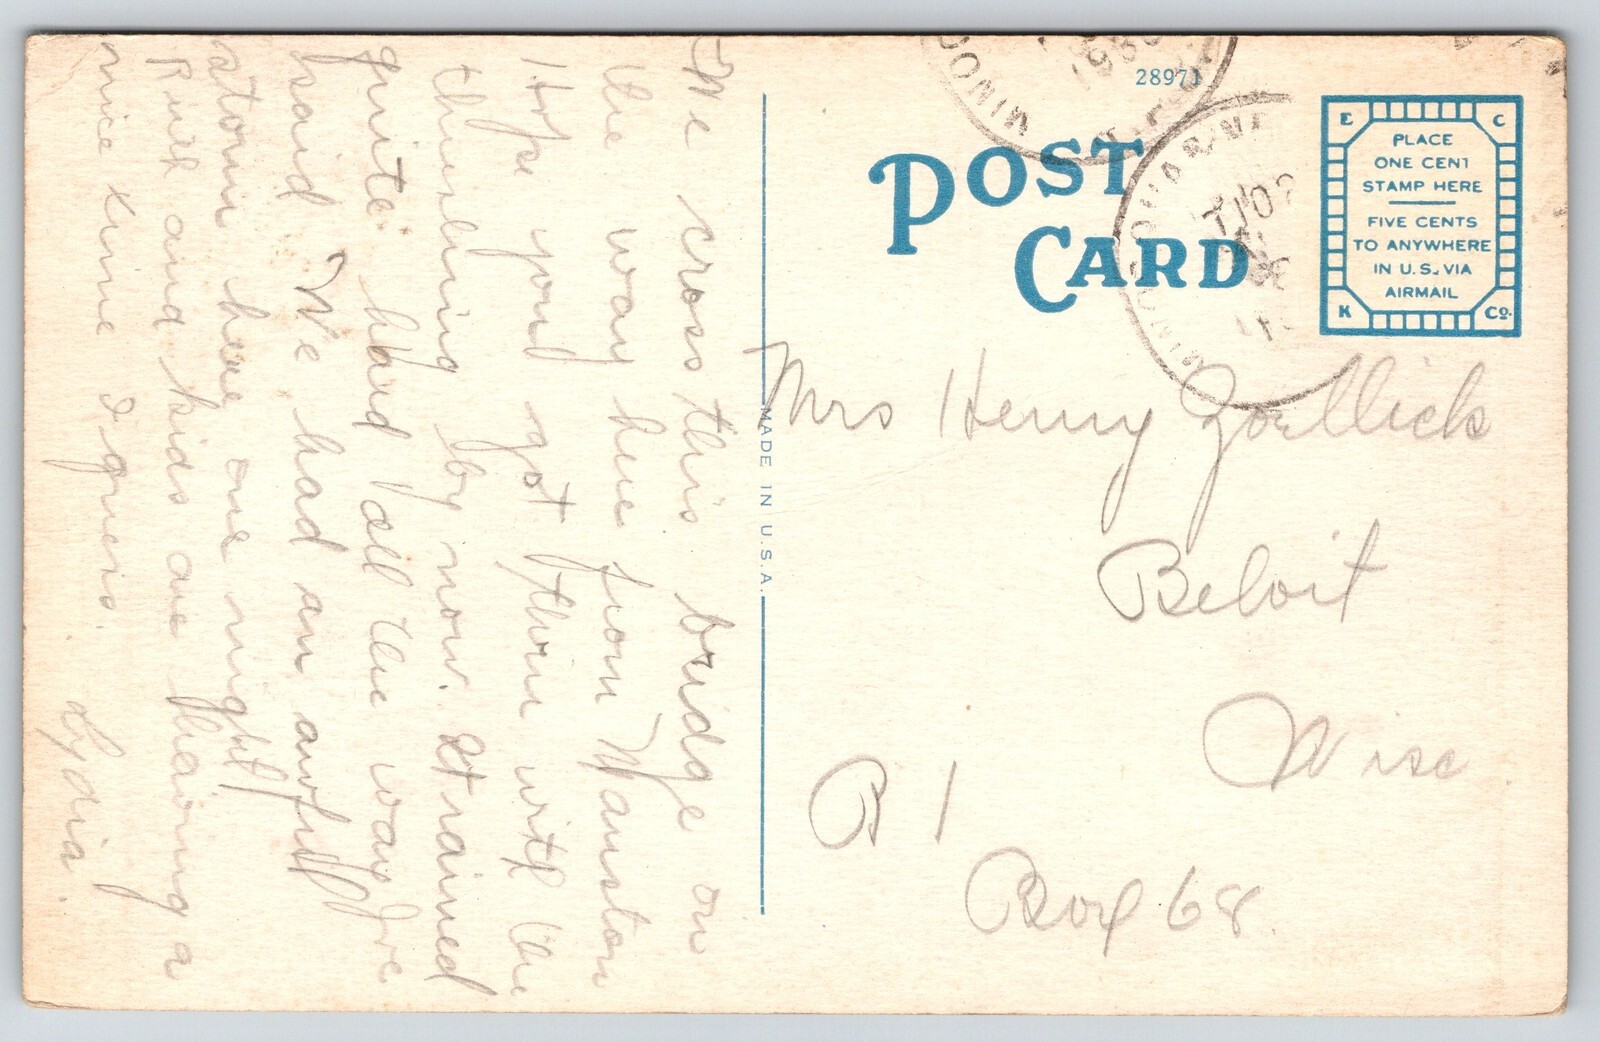 We cross this bridge on
the way here from Mauston
Hope you got thru with the
threshing by now. It rained
quite hard all the way Ire
said. We had an awful
storm here one night
Ruth and kids are having a
nice time I guess.
Lydia.
28971
POST
CARD
PLACE
ONE CENT
STAMP HERE
FIVE CENTS
TO ANYWHERE
IN U.S. VIA
AIRMAIL
E C
K Co.
MADE IN U.S.A.
MINOC
Mrs Henry Zoellick
Beloit
Wisc
R 1
Box 68.